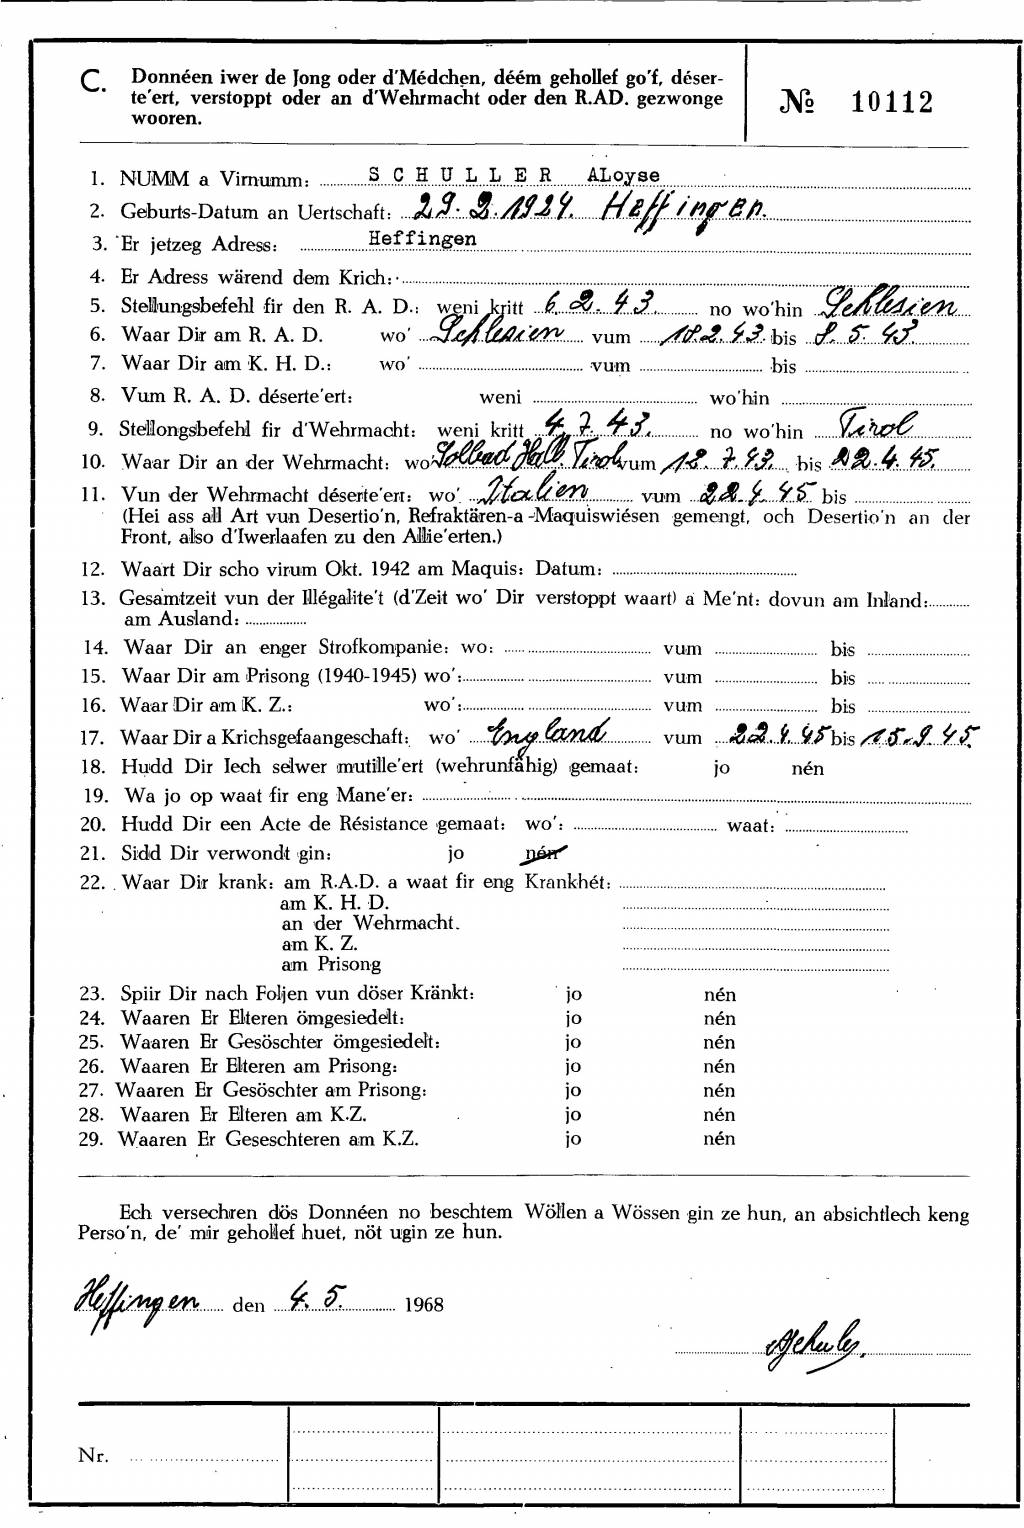 C. Donnéen iwer de Jong oder d'Médchen, déém gehollef go'f, déser-
te'ert, verstoppt oder an d'Wehrmacht oder den R.AD. gezwonge
wooren.
№ 10112
1. NUMM a Virnumm: S C H U L L E R ALoyse
2. Geburts-Datum an Uertschaft: 29.2.1924. Heffingen.
3. Er jetzeg Adress: Heffingen
4. Er Adress wärend dem Krich:
5. Stellungsbefehl fir den R. A. D.: weni kritt 6.2.43. no wo'hin Schlesien
6. Waar Dir am R. A. D. wo' Schlesien vum 18.2.43. bis 8.5.43.
7. Waar Dir am K. H. D.: wo' vum bis
8. Vum R. A. D. déserte'ert: weni wo'hin
9. Stellongsbefehl fir d'Wehrmacht: weni kritt 4.7.43. no wo'hin Tirol
10. Waar Dir an der Wehrmacht: wo' Solbad Hall. Tirol vum 12.7.43. bis 22.4.45.
11. Vun der Wehrmacht déserte'ert: wo' Italien vum 22.4.45 bis
(Hei ass all Art vun Desertio'n, Refraktären-a -Maquiswiésen gemengt, och Desertio'n an der
Front, also d'Iwerlaafen zu den Allie'erten.)
12. Waart Dir scho virum Okt. 1942 am Maquis: Datum:
13. Gesamtzeit vun der Illégalite't (d'Zeit wo' Dir verstoppt waart) a Me'nt: dovun am Inland:
am Ausland:
14. Waar Dir an enger Strofkompanie: wo: vum bis
15. Waar Dir am Prisong (1940-1945) wo': vum bis
16. Waar Dir am K. Z.: wo': vum bis
17. Waar Dir a Krichsgefaangeschaft: wo' England vum 22.4.45 bis 15.9.45.
18. Hudd Dir Iech selwer mutille'ert (wehrunfähig) gemaat: jo nén
19. Wa jo op waat fir eng Mane'er:
20. Hudd Dir een Acte de Résistance gemaat: wo': waat:
21. Sidd Dir verwondt gin: jo nén
22. Waar Dir krank: am R.A.D. a waat fir eng Krankhét:
am K. H. D.
an der Wehrmacht.
am K. Z.
am Prisong
23. Spiir Dir nach Foljen vun döser Kränkt: jo nén
24. Waaren Er Elteren ömgesiedelt: jo nén
25. Waaren Er Gesöschter ömgesiedelt: jo nén
26. Waaren Er Elteren am Prisong: jo nén
27. Waaren Er Gesöschter am Prisong: jo nén
28. Waaren Er Elteren am K.Z. jo nén
29. Waaren Er Geseschteren am K.Z. jo nén
Ech versechren dös Donnéen no beschtem Wöllen a Wössen gin ze hun, an absichtlech keng
Perso'n, de' mir gehollef huet, nöt ugin ze hun.
Heffingen den 4. 5. 1968
Nr.